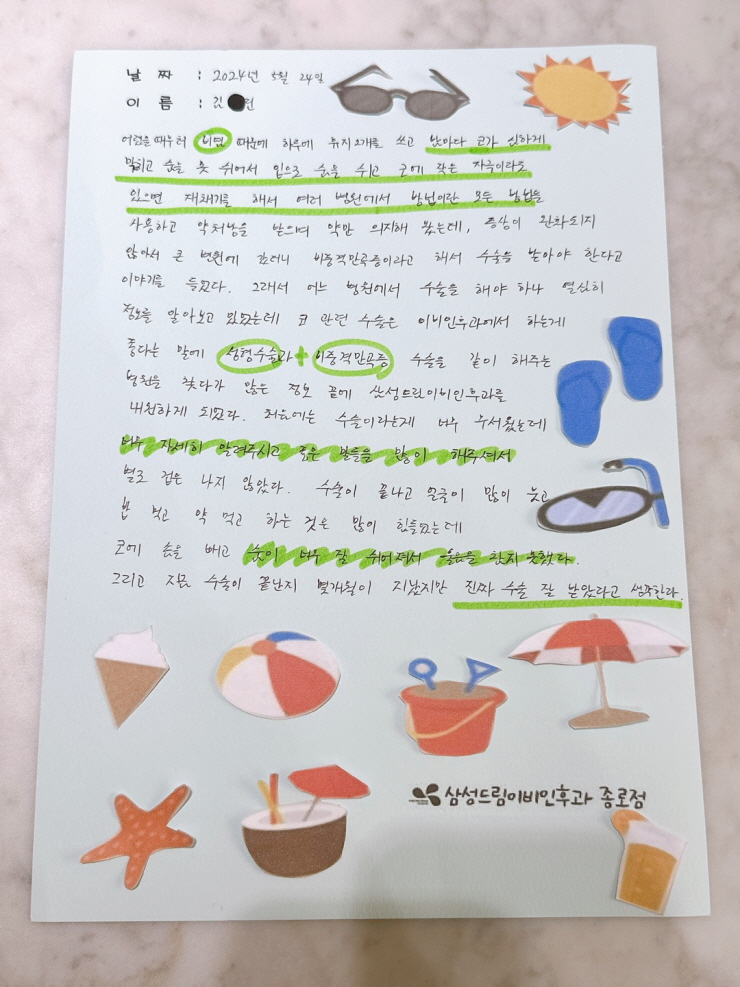 날 짜 : 2024년 5월 24일
이 름 : 김 린
어렸을때부터 비염 때문에 하루에 휴지 2개를 쓰고 날마다 코가 심하게
막히고 숨을 못 쉬어서 입으로 숨을 쉬고 코에 작은 자극이라도
있으면 재채기를 해서 여러 병원에서 방법이란 모든 방법들
사용하고 약처방을 받으며 약만 의지해 왔는데, 증상이 완화되지
않아서 큰 병원에 갔더니 비중격만곡증이라고 해서 수술을 받아야 한다고
이야기를 들었다. 그래서 어느 병원에서 수술을 해야 하나 열심히
정보를 알아보고 있었는데 코 관련 수술은 이비인후과에서 하는게
좋다는 말에 성형수술과 + 비중격만곡증 수술을 같이 해주는
병원을 찾다가 많은 정보 끝에 삼성드림이비인후과를
내원하게 되었다. 처음에는 수술이라는게 너무 무서웠는데
너무 자세히 알려주시고 좋은 말들을 많이 해주셔서
별로 겁은 나지 않았다. 수술이 끝나고 얼굴이 많이 붓고
밥 먹고 약 먹고 하는 것은 많이 힘들었는데
코에 솜을 빼고 숨이 너무 잘 쉬어져서 울음을 참지 못했다.
그리고 지금 수술이 끝난지 몇개월이 지났지만 진짜 수술 잘 받았다고 생각한다.
삼성드림이비인후과 종로점